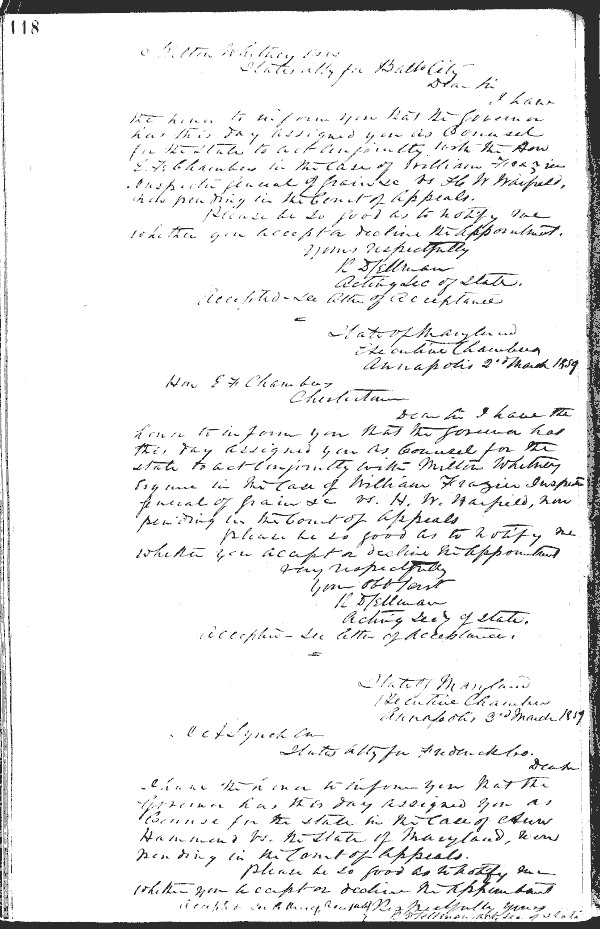 118
Milton Whitney Esq
States Atty for Balto City
Dear Sir
I have
the honor to inform you that the Governor
has this day assigned you as Counsel
for the State to act Conjointly with the Hon
E F Chambers in the Case of William Frazier
Inspector General of Grain &c vs H. W. Warfield,
now pending in the Court of Appeals.
Please be so good as to notify me
whether you accept or decline the appointment.
Yours respectfully
R D Sellman
Acting Sec of State.
Accepted - See letter of Acceptance
State of Maryland
Executive Chamber
Annapolis 2nd March 1859
Hon E F Chambers
Chestertown
Dear Sir I have the
honor to inform you that the Governor has
this day assigned you as Counsel for the
State to act Conjointly with Milton Whitney
Esquire in the Case of William Frazier Inspector
General of Grain &c vs. H. W. Warfield, now
pending in the Court of Appeals
Please be so good as to notify me
whether you accept or decline the appointment
Very respectfully
Your Obt Servt
R D Sellman
Acting Secy of State.
Accepted - See letter of Acceptance.
State of Maryland
Executive Chamber
Annapolis 3rd March 1859
Lynch
States Atty for Frederick Co.
Dear Sir
I have the honor to inform you that the
Governor has this day assigned you as
Counsel for the State in the Case of
Hammond vs. the State of Maryland, now
pending in the Court of Appeals.
Please be so good as to notify me
whether you accept or decline the appointment
Respectfully yours
R D Sellman Actg Sec of State